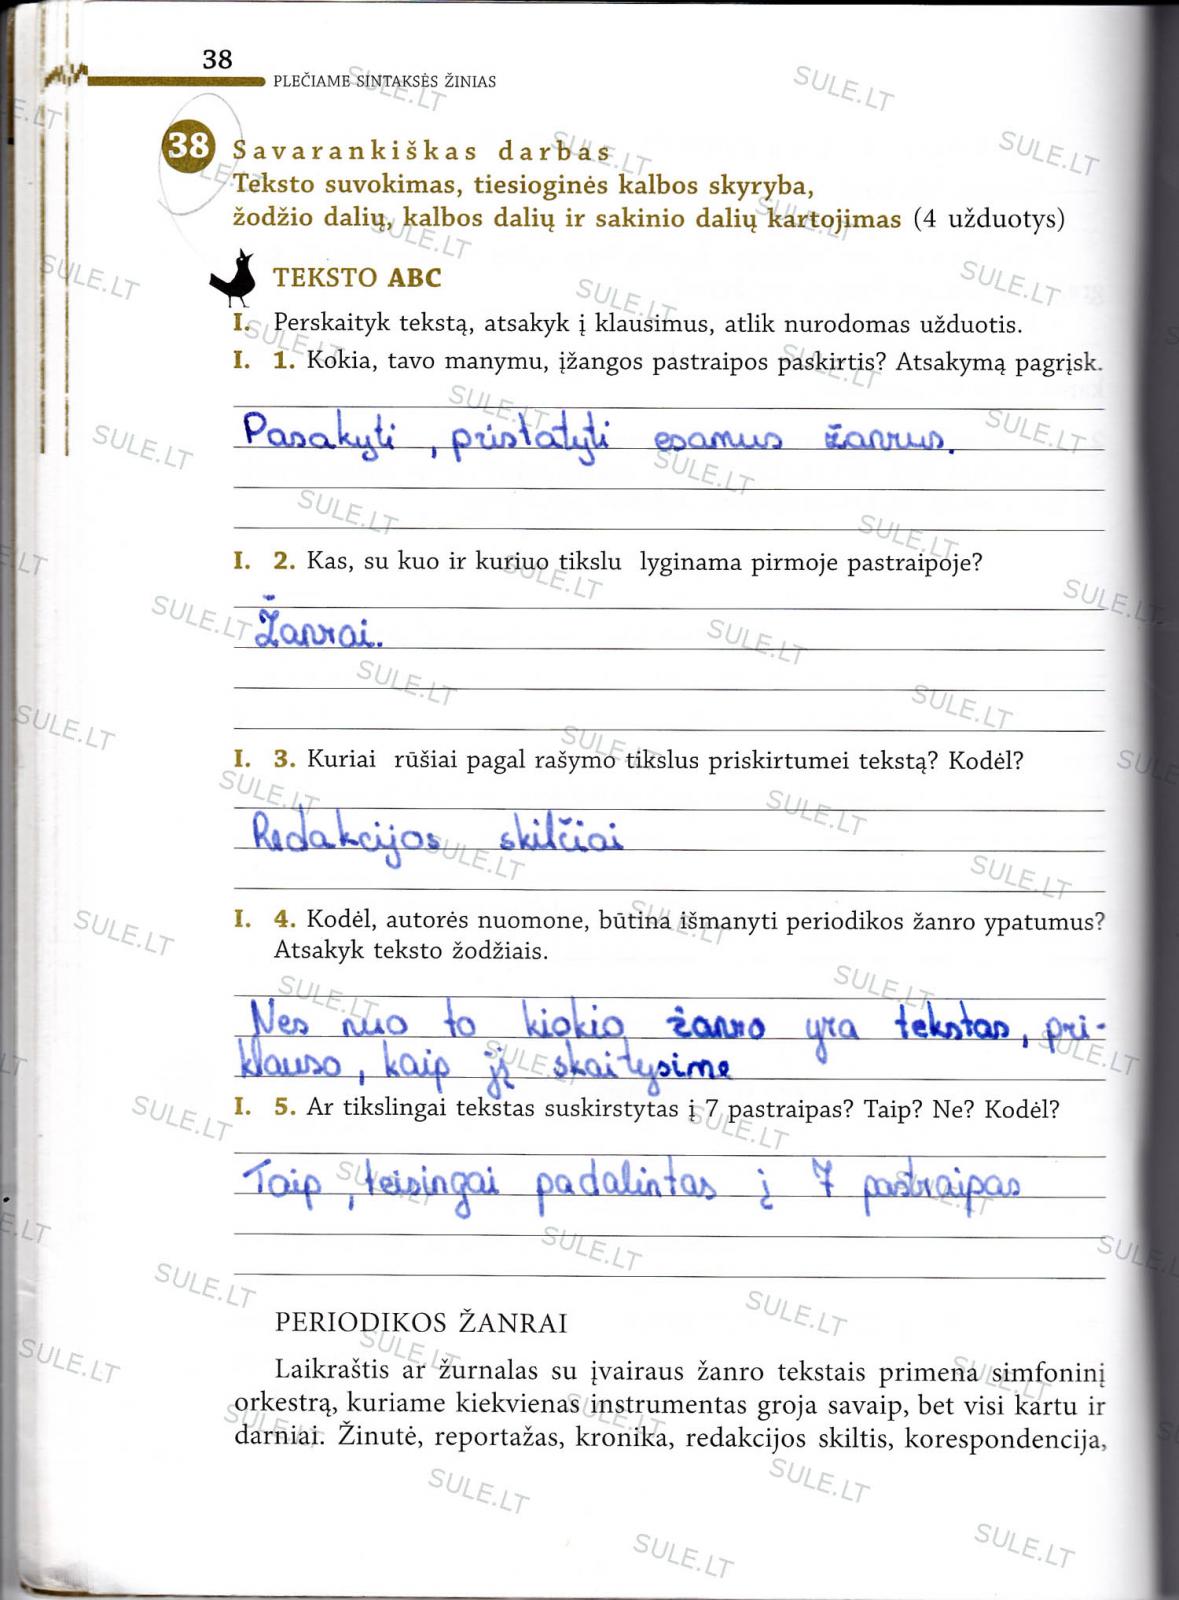 38
PLEČIAME SINTAKSĖS ŽINIAS
38 Savarankiškas darbas
Teksto suvokimas, tiesioginės kalbos skyryba,
žodžio dalių, kalbos dalių ir sakinio dalių kartojimas (4 užduotys)
TEKSTO ABC
I. Perskaityk tekstą, atsakyk į klausimus, atlik nurodomas užduotis.
I. 1. Kokia, tavo manymu, įžangos pastraipos paskirtis? Atsakymą pagrįsk.
Pasakyti, pristatyti esamus žanrus.
I. 2. Kas, su kuo ir kuriuo tikslu lyginama pirmoje pastraipoje?
Žanrai.
I. 3. Kuriai rūšiai pagal rašymo tikslus priskirtumei tekstą? Kodėl?
Redakcijos skilčiai
I. 4. Kodėl, autorės nuomone, būtina išmanyti periodikos žanro ypatumus?
Atsakyk teksto žodžiais.
Nes nuo to kiokio žanro yra tekstas, pri-
klauso, kaip jį skaitysime
I. 5. Ar tikslingai tekstas suskirstytas į 7 pastraipas? Taip? Ne? Kodėl?
Taip, teisingai padalintas į 7 pastraipas
PERIODIKOS ŽANRAI
Laikraštis ar žurnalas su įvairaus žanro tekstais primena simfoninį
orkestrą, kuriame kiekvienas instrumentas groja savaip, bet visi kartu ir
darniai. Žinutė, reportažas, kronika, redakcijos skiltis, korespondencija,
SULE.LT